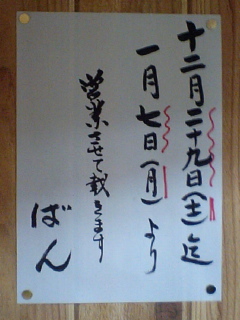 十二月二十九日(土)迄
一月七日(月)より
営業させて戴きます
ばん